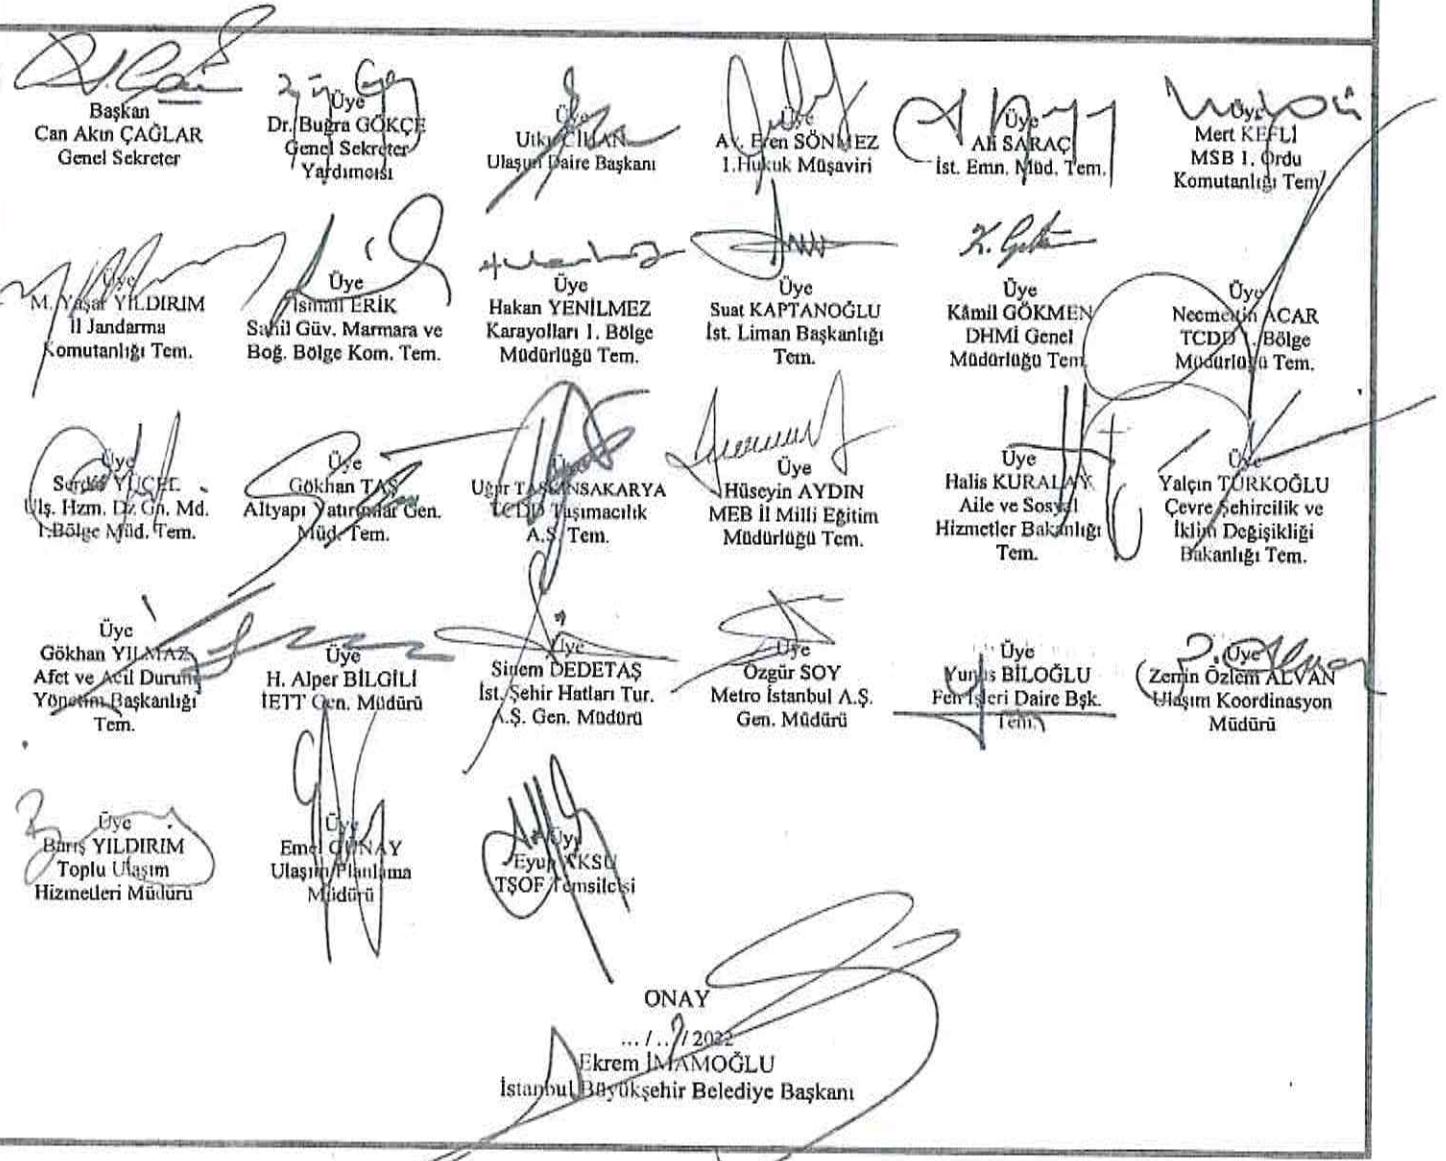 Başkan
Can Akın ÇAĞLAR
Genel Sekreter
Üye
Dr. Buğra GÖKÇE
Genel Sekreter
Yardımcısı
Üye
Utku CİHAN
Ulaşım Daire Başkanı
Üye
Av. Eren SÖNMEZ
1.Hukuk Müşaviri
Üye
Ali SARAÇ
İst. Emn. Müd. Tem.
Üye
Mert KEFLİ
MSB 1. Ordu
Komutanlığı Tem.
Üye
M. Yaşar YILDIRIM
İl Jandarma
Komutanlığı Tem.
Üye
İsmail ERİK
Sahil Güv. Marmara ve
Boğ. Bölge Kom. Tem.
Üye
Hakan YENİLMEZ
Karayolları 1. Bölge
Müdürlüğü Tem.
Üye
Suat KAPTANOĞLU
İst. Liman Başkanlığı
Tem.
Üye
Kâmil GÖKMEN
DHMİ Genel
Müdürlüğü Tem.
Üye
Necmettin ACAR
TCDD 1. Bölge
Müdürlüğü Tem.
Üye
Serdar YÜCEL
Ulş. Hzm. Dz. Gn. Md.
1.Bölge Müd. Tem.
Üye
Gökhan TAŞ
Altyapı Yatırımlar Gen.
Müd. Tem.
Üye
Uğur TAŞKINSAKARYA
TCDD Taşımacılık
A.Ş. Tem.
Üye
Hüseyin AYDIN
MEB İl Milli Eğitim
Müdürlüğü Tem.
Üye
Halis KURALAY
Aile ve Sosyal
Hizmetler Bakanlığı
Tem.
Üye
Yalçın TÜRKOĞLU
Çevre Şehircilik ve
İklim Değişikliği
Bakanlığı Tem.
Üye
Gökhan YILMAZ
Afet ve Acil Durum
Yönetim Başkanlığı
Tem.
Üye
H. Alper BİLGİLİ
İETT Gen. Müdürü
Üye
Sinem DEDETAŞ
İst. Şehir Hatları Tur.
A.Ş. Gen. Müdürü
Üye
Özgür SOY
Metro İstanbul A.Ş.
Gen. Müdürü
Üye
Yunus BİLOĞLU
Fen İşleri Daire Bşk.
Tem.
Üye
Zerrin Özlem ALVAN
Ulaşım Koordinasyon
Müdürü
Üye
Barış YILDIRIM
Toplu Ulaşım
Hizmetleri Müdürü
Üye
Emel GÜNAY
Ulaşım Planlama
Müdürü
Üye
Eyup AKSU
TŞOF Temsilcisi
ONAY
... / .. / 2022
Ekrem İMAMOĞLU
İstanbul Büyükşehir Belediye Başkanı